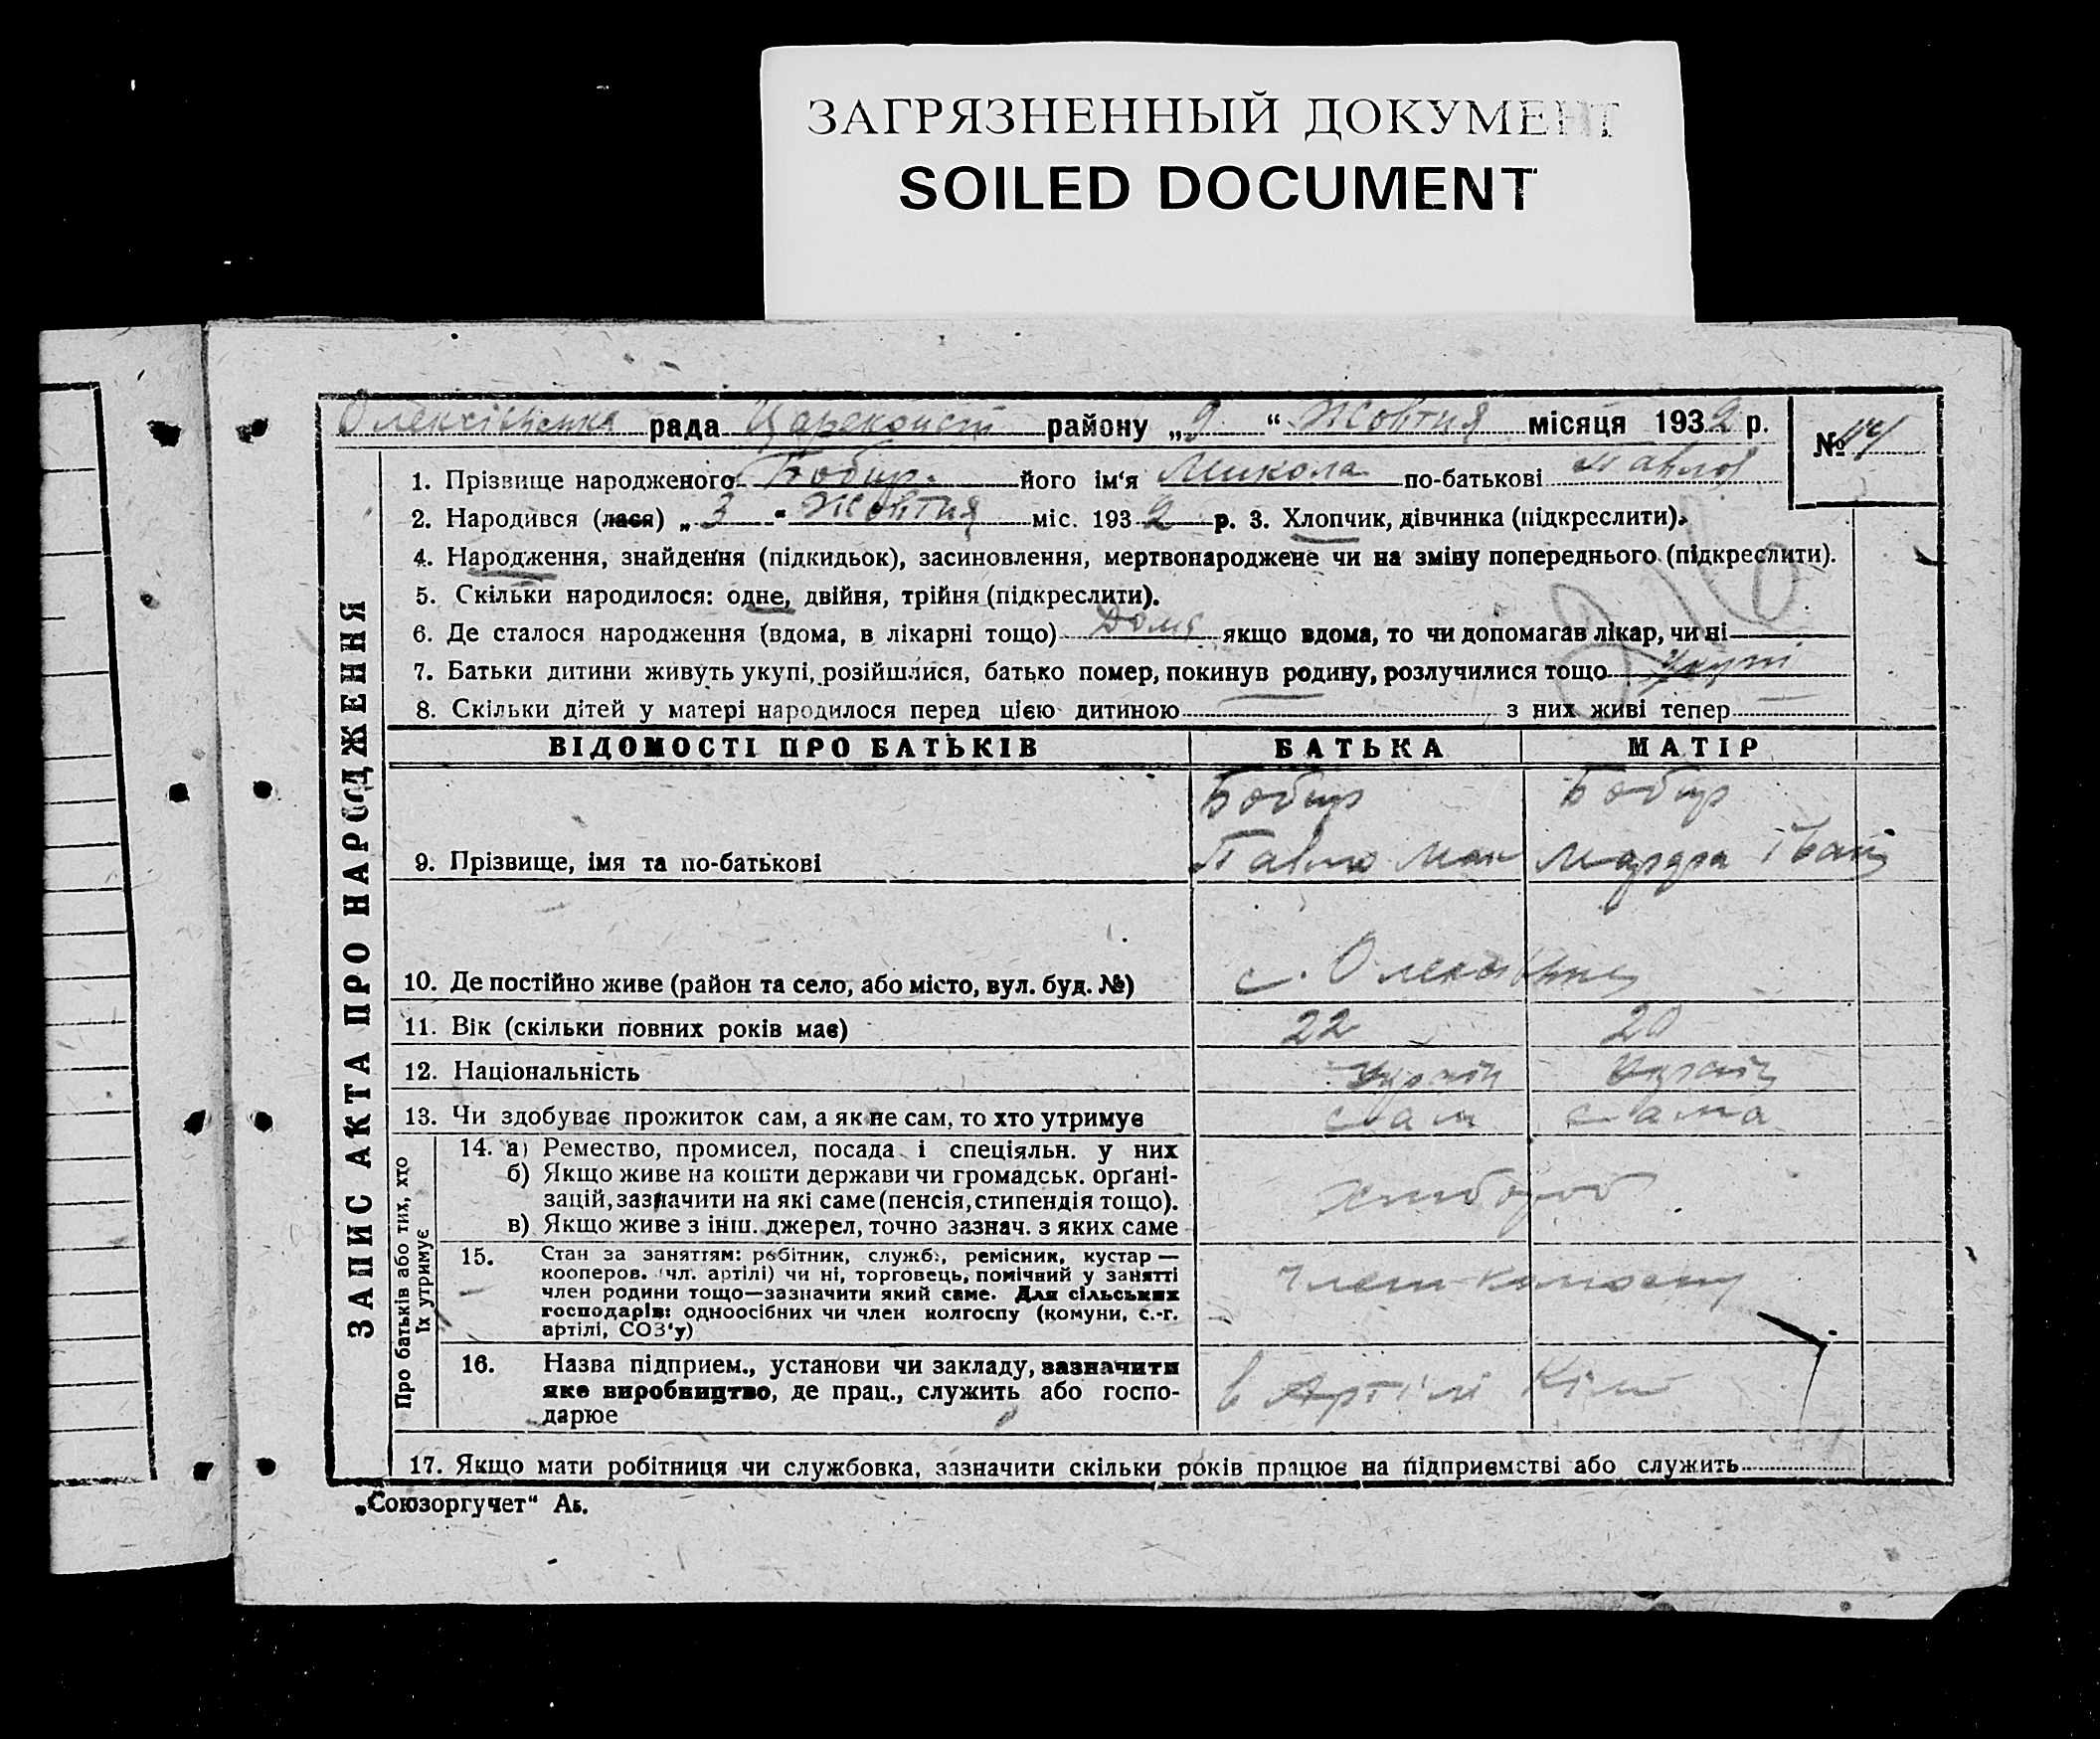 ЗАГРЯЗНЕННЫЙ ДОКУМЕНТ
SOILED DOCUMENT
Олексіївська рада Царекон ррайону „9“ Жовтня місяця 1932 р.
№
1. Прізвище народженого Бобир. його ім'я Микола по-батькові Павлов
2. Народився (лася) „3“ Жовтня міс. 1932 р. 3. Хлопчик, дівчинка (підкреслити).
4. Народження, знайдення (підкидьок), засиновлення, мертвонароджене чи на зміну попереднього (підкреслити).
5. Скільки народилося: одне, двійня, трійня (підкреслити).
6. Де сталося народження (вдома, в лікарні тощо) Дома якщо вдома, то чи допомагав лікар, чи ні
7. Батьки дитини живуть укупі, розійшлися, батько помер, покинув родину, розлучилися тощо Укупі
8. Скільки дітей у матері народилося перед цією дитиною з них живі тепер
ЗАПИС АКТА ПРО НАРОДЖЕННЯ
ВІДОМОСТІ ПРО БАТЬКІВ БАТЬКА МАТІР
Бобир Бобир
9. Прізвище, імя та по-батькові Павло Іван
10. Де постійно живе (район та село, або місто, вул. буд. №) с. Олексіївка
11. Вік (скільки повних років має) 22 20
12. Національність Україн Україн
13. Чи здобуває прожиток сам, а як не сам, то хто утримує сам сама
Про батьків або тих, хто
їх утримує
14. а) Ремество, промисел, посада і спеціяльн. у них
б) Якщо живе на кошти держави чи громадськ. орґані-
зацій, зазначити на які саме (пенсія, стипендія тощо).
в) Якщо живе з інш. джерел, точно зазнач. з яких саме
Хлібороб
15. Стан за заняттям: робітник, служб., ремісник, кустар —
кооперов. (чл. артілі) чи ні, торговець, помічний у занятті
член родини тощо—зазначити який саме. Для сільських
господарів: одноосібних чи член колгоспу (комуни, с.-г.
артілі, СОЗ'у)
член колгоспу
16. Назва підприєм., установи чи закладу, зазначити
яке виробництво, де прац., служить або госпо-
дарює
в Артілі Кім
17. Якщо мати робітниця чи службовка, зазначити скільки років працює на підприємстві або служить
„Союзоргучет“ Ак.